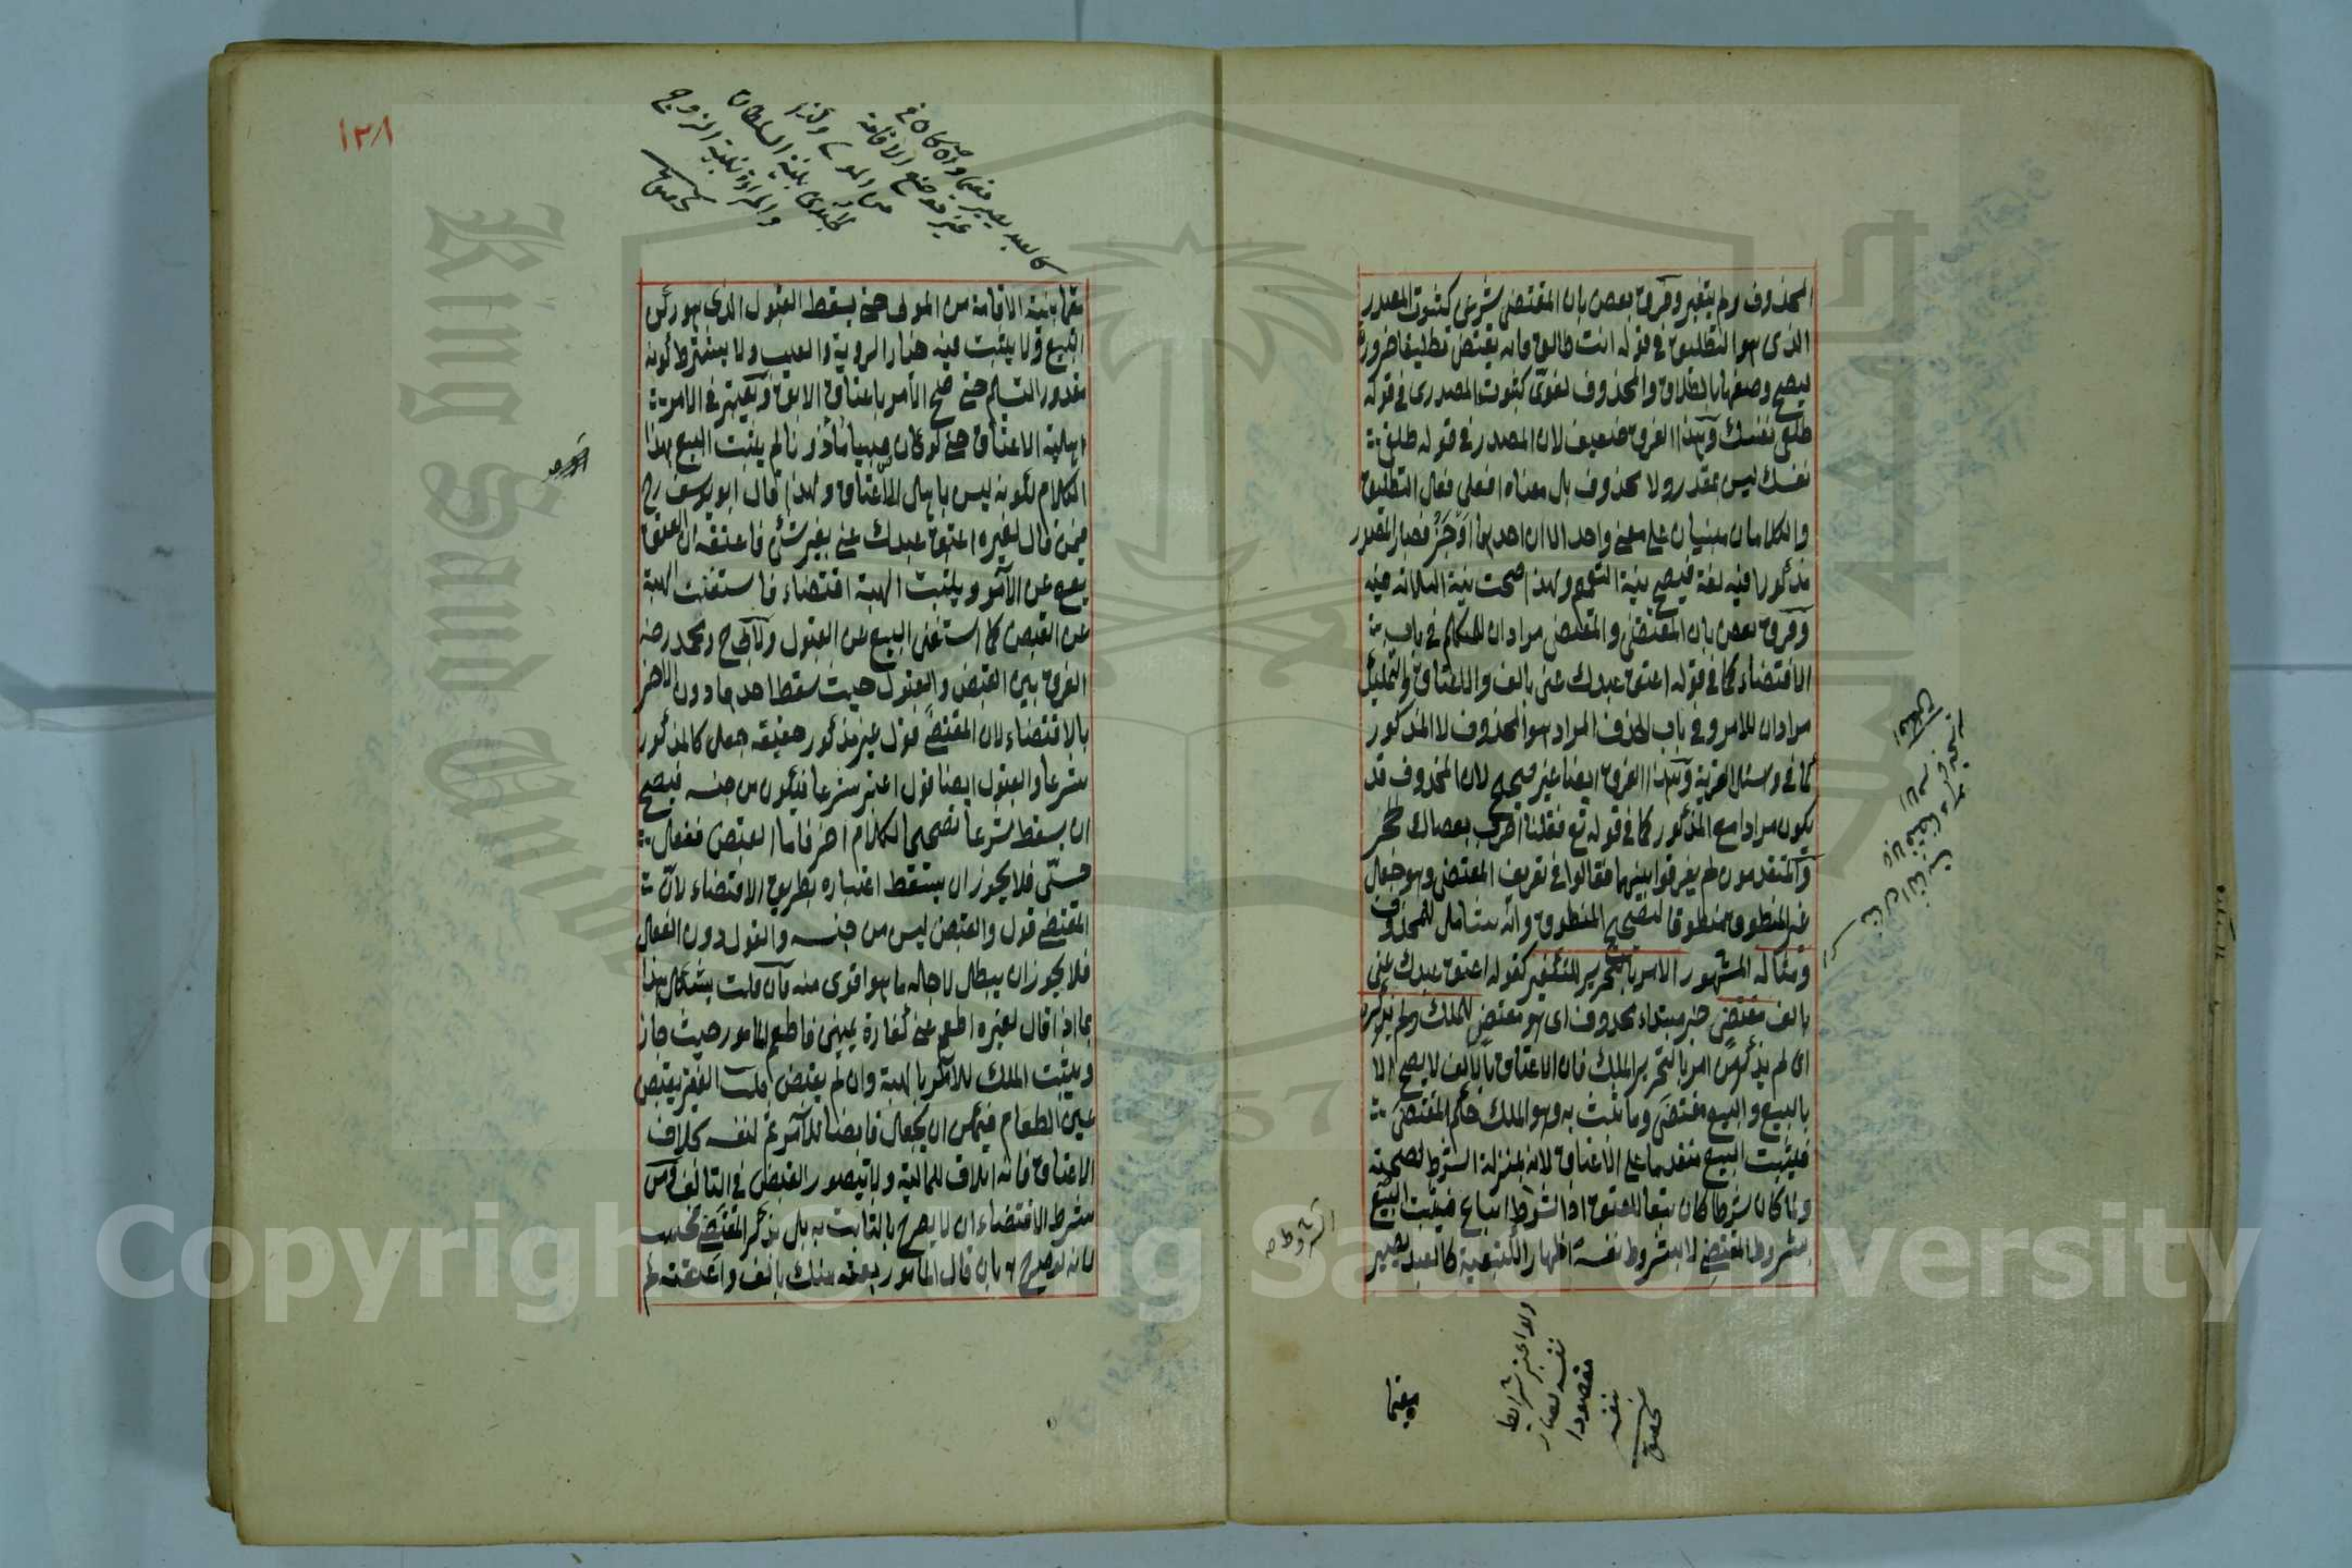 المحذوف ولم يتغير وفرق بعض بان المقتضى شرعى كثبوت المصدر
الذى هو التطليق فى قوله انت طالق فانه يقتضى تطليقا ضرورة
ليصح وصفها بالطلاق والمحذوف لغوى كثبوت المصدر فى قوله
طلقى نفسك وهذا الفرق ضعيف لان المصدر فى قوله طلقى
نفسك ليس بمقدر ولا محذوف بل معناه افعلى فعل التطليق
والكلامان مبنيان على معنى واحد الا ان احدهما اوجز فصار المصدر
مذكورا فيه لغة فيصح نية التعميم ولهذا صحت نية الثلاث فيه
وفرق بعض بان المقتضى والمقتضى مرادان للمتكلم فى باب
الاقتضاء كما فى قوله اعتق عبدك عنى بالف والاعتاق والتمليك
مرادان للامر وفى باب الحذف المراد هو المحذوف لا المذكور
كما فى وسئل القرية وهذا الفرق ايضا غير صحيح لان المحذوف قد
يكون مرادا مع المذكور كما فى قوله تع فقلنا اضرب بعصاك الحجر
والمتقدمون لم يفرقوا بينهما فقالوا فى تعريف المقتضى وهو جعل
غير المنطوق منطوقا لتصحيح المنطوق وانه شامل للمحذوف
ومثاله المشهور الامر بالتحرير للتكفير كقوله اعتق عبدك عنى
بالف مقتض خبر مبتداء محذوف اى هو مقتض للملك ولم يذكره
اى لم يذكر من امر بالتحرير الملك فان الاعتاق بالالف لا يصح الا
بالبيع والبيع مقتضى وما ثبت به وهو الملك حكم المقتضى
فيثبت البيع متقدما على الاعتاق لانه بمنزلة الشرط لصحته
ولما كان شرطا كان تبعا للعتق اذ الشروط اتباع فيثبت البيع
بشروط المقتضى لا بشروط نفسه اظهارا للتبعية كالعبد يصير
الشروط صح
ولو اعتبر شرايط
نفسه لصار
مقصودا
بنفسه
تحقيق
مقيما
١٣٨
كالعبد يصير مقيما وان كان فى
غير موضع الاقامة
من المولى وكذا
الجندى بنية السلطان
والمرأة بنية الزوج
تحقيق
مقيما بنية الاقامة من المولى حتى يسقط القبول الذى هو ركن
البيع ولا يثبت فيه خيار الروية والعيب ولا يشترط كونه
مقدور التسليم حتى صح الامر باعتاق الابق ويعتبر فى الامر
اهلية الاعتاق حتى لو كان صبيا ماذونا لم يثبت البيع بهذا
الكلام لكونه ليس باهل للاعتاق ولهذا قال ابو يوسف رح
فيمن قال لغيره اعتق عبدك عنى بغير شئ فاعتقه ان العتق
يقع عن الآمر ويثبت الهبة اقتضاء فاستغنت الهبة
عن القبض كما استغنى البيع عن القبول ولابى ح ومحمد رضه
الفرق بين القبض والقبول حيث سقط احدهما دون الاخر
بالاقتضاء لان المقتضى قول غير مذكور حقيقة جعل كالمذكور
شرعا والقبول ايضا قول اعتبر شرعا فيكون من جنسه فيصح
ان يسقط شرعا تصحيحا لكلام اخر فاما القبض ففعل
حسى فلا يجوز ان يسقط اعتباره بطريق الاقتضاء لان
المقتضى قول والقبض ليس من جنسه والقول دون الفعل
فلا يجوز ان يبطل لاجله ما هو اقوى منه فان قلت يشكل هذا
بما اذا قال لغيره اطعم عنى كفارة يمينى فاطعم المامور حيث جاز
ويثبت الملك للآمر بالهبة وان لم يقبض قلت الفقير يقبض
عين الطعام فيمكن ان يجعل قابضا للآمر ثم لنفسه بخلاف
الاعتاق فانه اتلاف للمالية ولا يتصور القبض فى التالف ومن
شرط الاقتضاء ان لا يصرح بالثابت به بل يذكر المقتضى فحسب
لانه لو صرح به بان قال المامور بعته منك بالف واعتقته لم